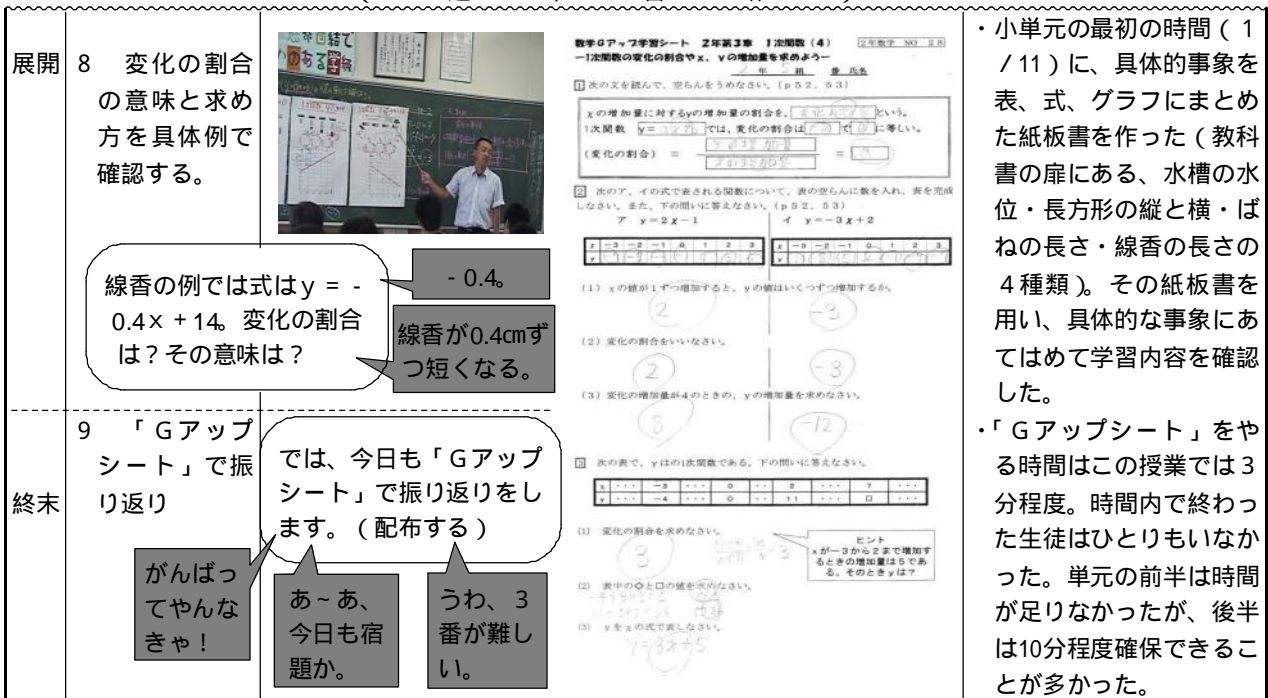 展開
8 変化の割合
の意味と求め
方を具体例で
確認する。
線香の例では式はy = -
0.4x + 14。変化の割合
は?その意味は?
- 0.4。
線香が0.4㎝ず
つ短くなる。
終末
9 「Gアップ
シート」で振
り返り
では、今日も「Gアップ
シート」で振り返りをし
ます。(配布する)
がんばっ
てやんな
きゃ!
あ~あ、
今日も宿
題か。
うわ、3
番が難し
い。
数学Gアップ学習シート 2年第3章 1次関数(4) 2年数学 NO 28
ー1次関数の変化の割合やx、yの増加量を求めようー
年 組 番 氏名
1 次の文を読んで、空らんをうめなさい。(p52、53)
xの増加量に対するyの増加量の割合を、変化の割合という。
1次関数 y= では、変化の割合は で に等しい。
(変化の割合) = yの増加量 / xの増加量 = a
2 次のア、イの式で表される関数について、表の空らんに数を入れ、表を完成
しなさい。また、下の問いに答えなさい。(p52、53)
ア y=2x-1 イ y=-3x+2
x -3 -2 -1 0 1 2 3 x -3 -2 -1 0 1 2 3
y y
(1) xの値が1ずつ増加すると、yの値はいくつずつ増加するか。
2 -3
(2) 変化の割合をいいなさい。
2 -3
(3) 変化の増加量が4のときの、yの増加量を求めなさい。
8 -12
3 次の表で、yはの1次関数である。下の問いに答えなさい。
x ・・・ -3 ・・・ 0 ・・ 2 ・・・ 7 ・・・
y ・・・ -4 ・・・ ◇ ・・ 11 ・・・ □ ・・・
(1) 変化の割合を求めなさい。
3
ヒント
xが-3から2まで増加す
るときの増加量は5であ
る。そのときyは?
(2) 表中の◇と□の値を求めなさい。
(3) yをxの式で表しなさい。
y=3x+5
・小単元の最初の時間(1
/11)に、具体的事象を
表、式、グラフにまとめ
た紙板書を作った(教科
書の扉にある、水槽の水
位・長方形の縦と横・ば
ねの長さ・線香の長さの
4種類)。その紙板書を
用い、具体的な事象にあ
てはめて学習内容を確認
した。
・「Gアップシート」をや
る時間はこの授業では3
分程度。時間内で終わっ
た生徒はひとりもいなか
った。単元の前半は時間
が足りなかったが、後半
は10分程度確保できるこ
とが多かった。